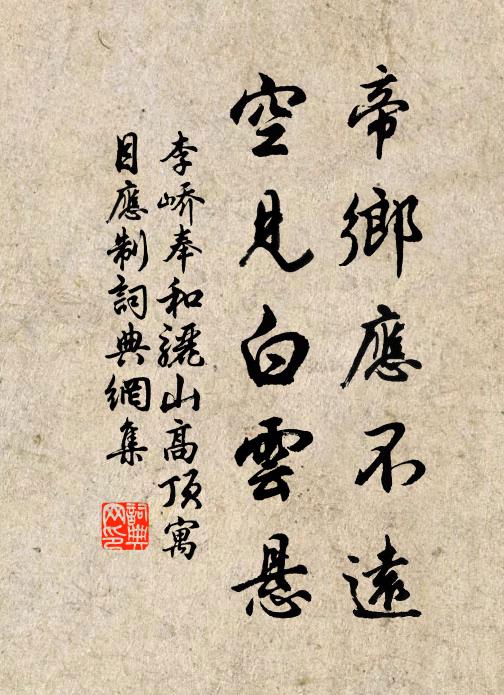 帝鄉應不遠
空見白雲悬
李嶠奉和驪山高頂寓
目應制詞典網集
詞典
网印